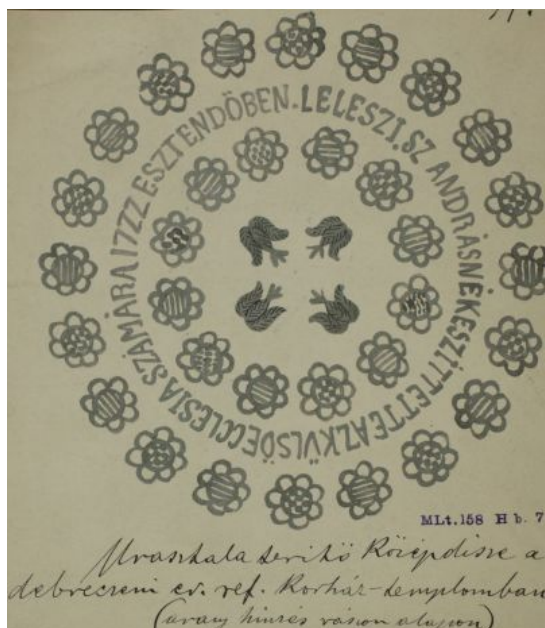 LELESZI. SZ ANDRÁSNÉ KESZÍTTETTE AZ KŰLSÖ ECCLESIA SZÁMÁRA 1777 ESZTENDÖBEN.
MLt.158 H b. 7
Urasztala terítő középdísze a
debreczeni ev. ref. Korház-templomban
(arany hímzés vászon alapon)